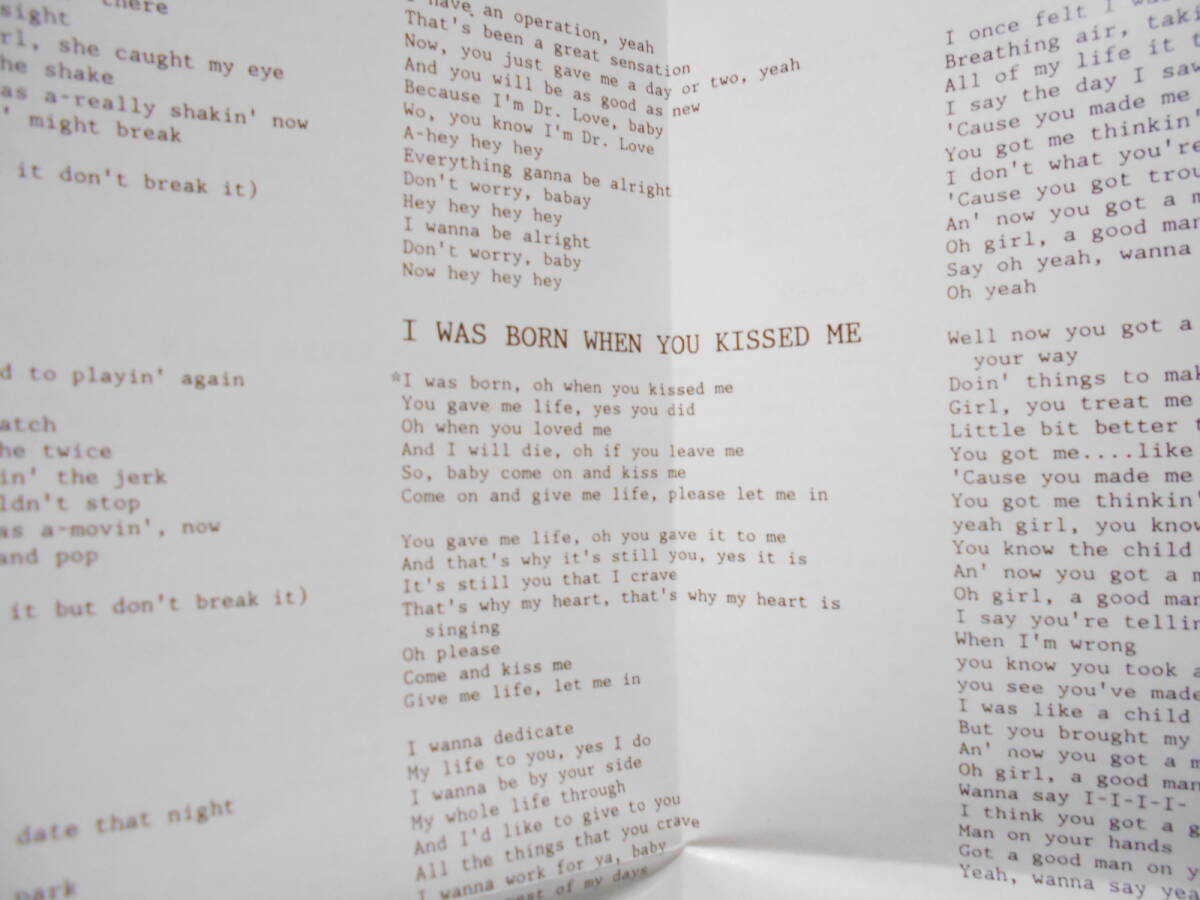 there
sight
she caught my eye
shake
a-really shakin' now
might break
it don't break it)
to playin' again
twice
the jerk
stop
a-movin', now
and pop
it but don't break it)
date that night
park
have an operation, yeah
That's been a great sensation
Now, you just gave me a day or two, yeah
And you will be as good as new
Because I'm Dr. Love, baby
Wo, you know I'm Dr. Love
A-hey hey hey
Everything ganna be alright
Don't worry, babay
Hey hey hey hey
I wanna be alright
Don't worry, baby
Now hey hey hey
I WAS BORN WHEN YOU KISSED ME
*I was born, oh when you kissed me
You gave me life, yes you did
Oh when you loved me
And I will die, oh if you leave me
So, baby come on and kiss me
Come on and give me life, please let me in
You gave me life, oh you gave it to me
And that's why it's still you, yes it is
It's still you that I crave
That's why my heart, that's why my heart is
singing
Oh please
Come and kiss me
Give me life, let me in
I wanna dedicate
My life to you, yes I do
I wanna be by your side
My whole life through
And I'd like to give to you
All the things that you crave
I wanna work for ya, baby
of my days
I once felt I
Breathing air,
All of my life it
I say the day I saw
'Cause you made me
You got me thinkin'
I don't what you're
'Cause you got
An' now you got a
Oh girl, a good
Say oh yeah, wanna
Oh yeah
Well now you got a
your way
Doin' things to
Girl, you treat me
Little bit better
You got me....like
'Cause you made me
You got me thinkin'
yeah girl, you
You know the child
An' now you got a
Oh girl, a good
I say you're
When I'm wrong
you know you took
you see you've made
I was like a child
But you brought my
An' now you got a
Oh girl, a good
Wanna say I-I-I-I-
I think you got a
Man on your hands
Got a good man on
Yeah, wanna say